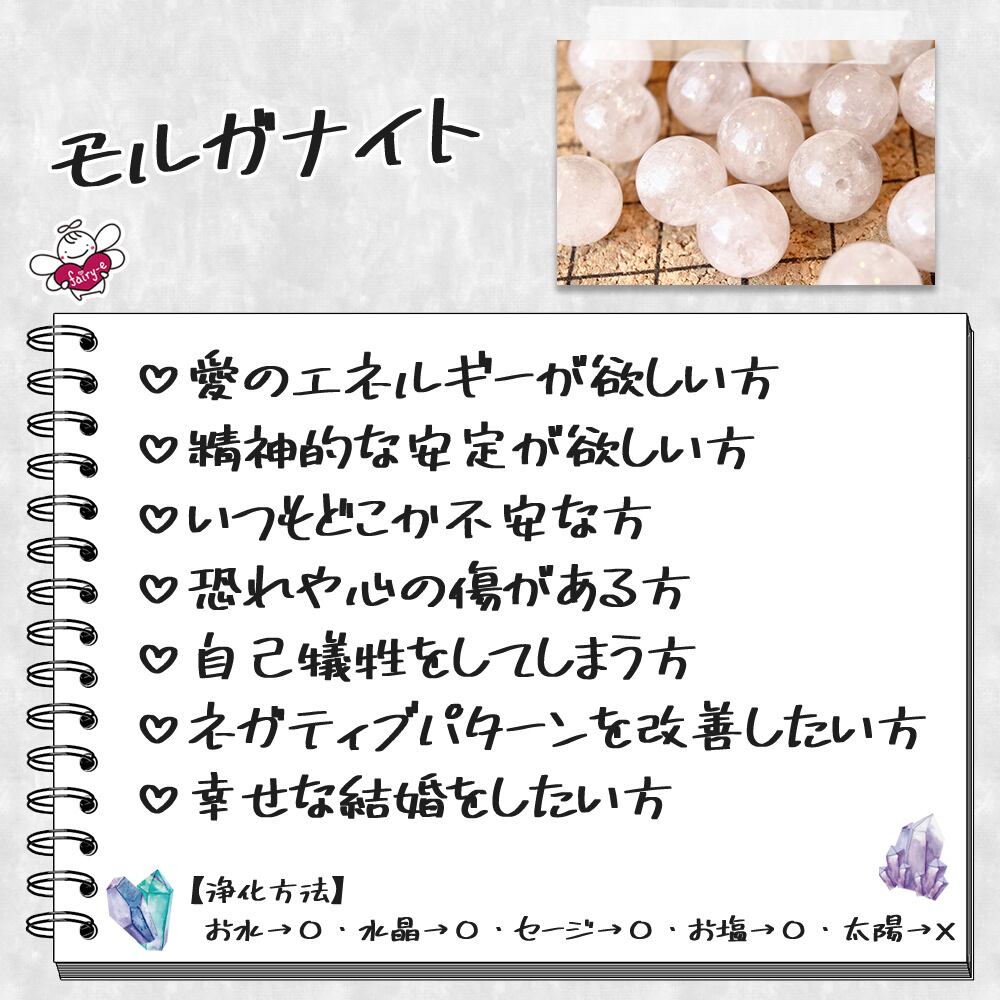 モルガナイト
fairy-e
♡愛のエネルギーが欲しい方
♡精神的な安定が欲しい方
♡いつもどこか不安な方
♡恐れや心の傷がある方
♡自己犠牲をしてしまう方
♡ネガティブパターンを改善したい方
♡幸せな結婚をしたい方
【浄化方法】
お水→○・水晶→○・セージ→○・お塩→○・太陽→×